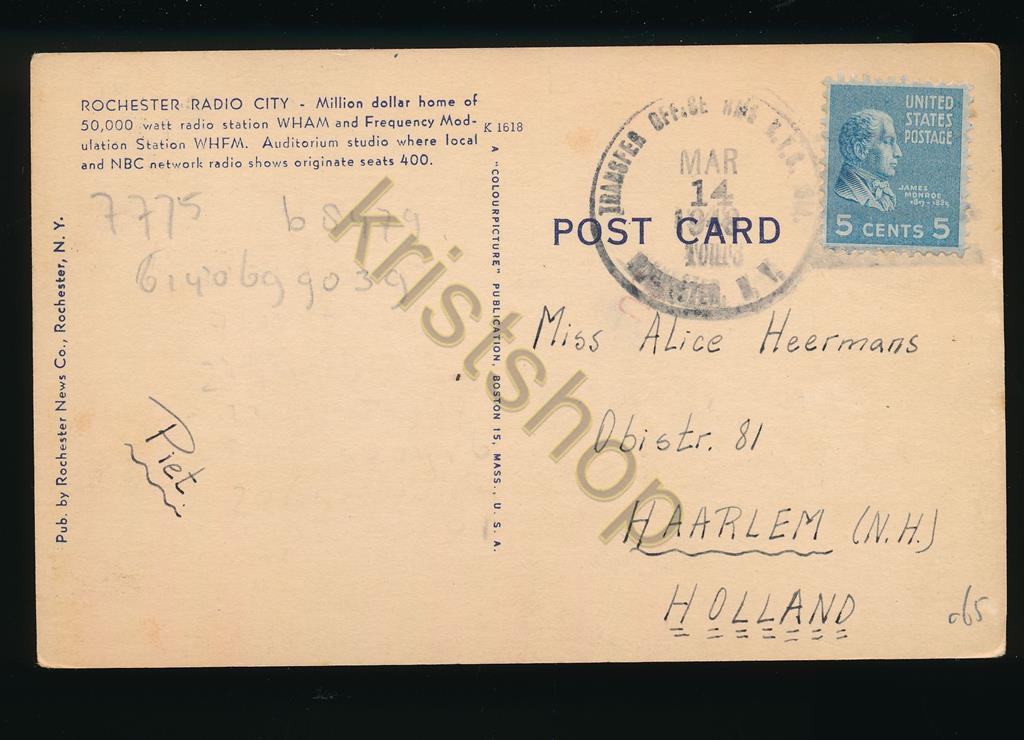 ROCHESTER RADIO CITY - Million dollar home of
50,000 watt radio station WHAM and Frequency Mod-
ulation Station WHFM. Auditorium studio where local
and NBC network radio shows originate seats 400.
K 1618
A "COLOURPICTURE" PUBLICATION, BOSTON 15, MASS., U. S. A.
Pub. by Rochester News Co., Rochester, N. Y.
7775
Piet
TRANSFER OFFICE
MAR
14
ROCHESTER, N. Y.
UNITED
STATES
POSTAGE
JAMES
MONROE
1817-1825
5 CENTS 5
POST CARD
Miss Alice Heermans
Obistr. 81
HAARLEM (N.H.)
HOLLAND
d65
kristshop